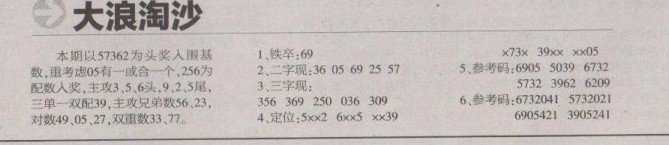 大浪淘沙
本期以57362为头奖入围基
数,重考虑05有一或合一个,256为
配数入奖,主攻3、5、6头,9、2、5尾,
三单一双配39,主攻兄弟数56、23,
对数49、05、27,双重数33、77。
1、铁卒:69
2、二字现:36 05 69 25 57
3、三字现:
356 369 250 036 309
4、定位:5xx2 6xx5 xx39
x73x 39xx xx05
5、参考码:6905 5039 6732
5732 3962 6209
6、参考码:6732041 5732021
6905421 3905241